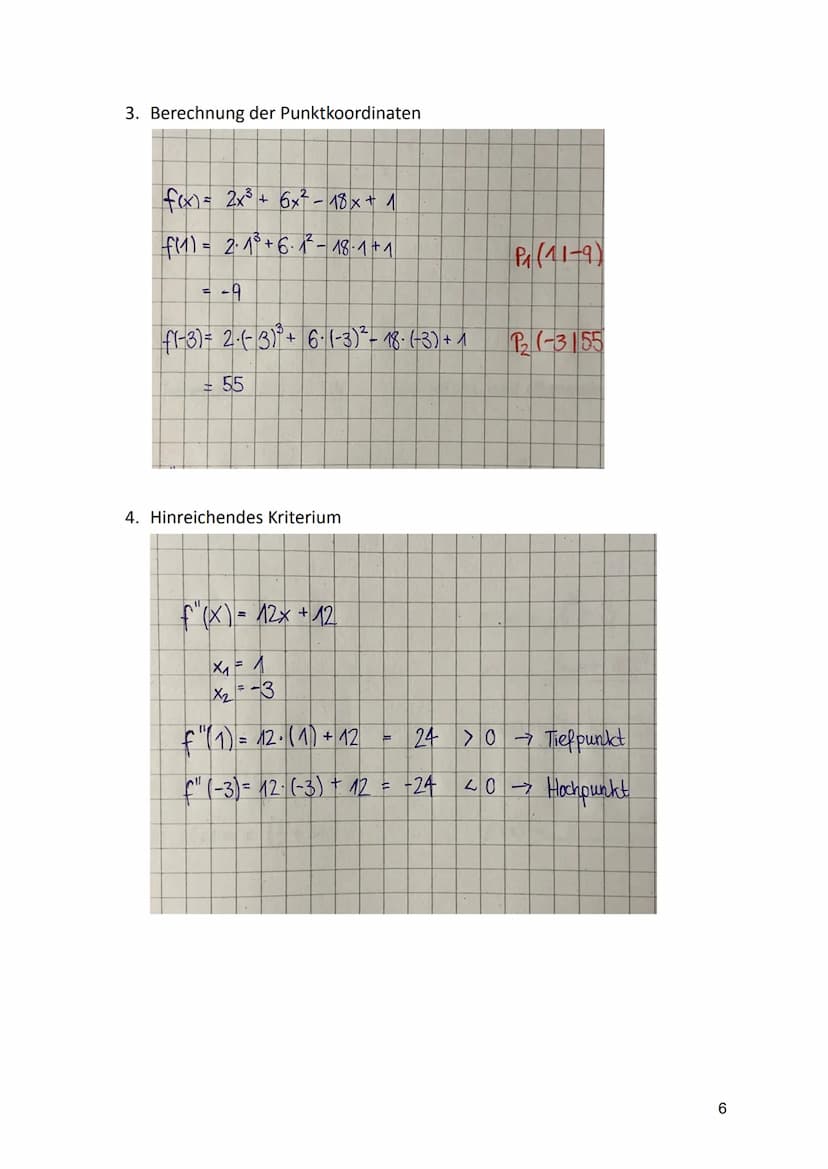 3. Berechnung der Punktkoordinaten
f(x) = 2x³ + 6x² - 18x + 1
f(1) = 2·1³ + 6·1² - 18·1 + 1
P₁ (1|-9)
= -9
f(-3) = 2·(-3)³ + 6·(-3)² - 18·(-3) + 1
P₂ (-3|55
= 55
4. Hinreichendes Kriterium
f"(x) = 12x + 12
x₁ = 1
x₂ = -3
f"(1) = 12·(1) + 12 = 24 > 0 → Tiefpunkt
f"(-3) = 12·(-3) + 12 = -24 < 0 → Hochpunkt
6